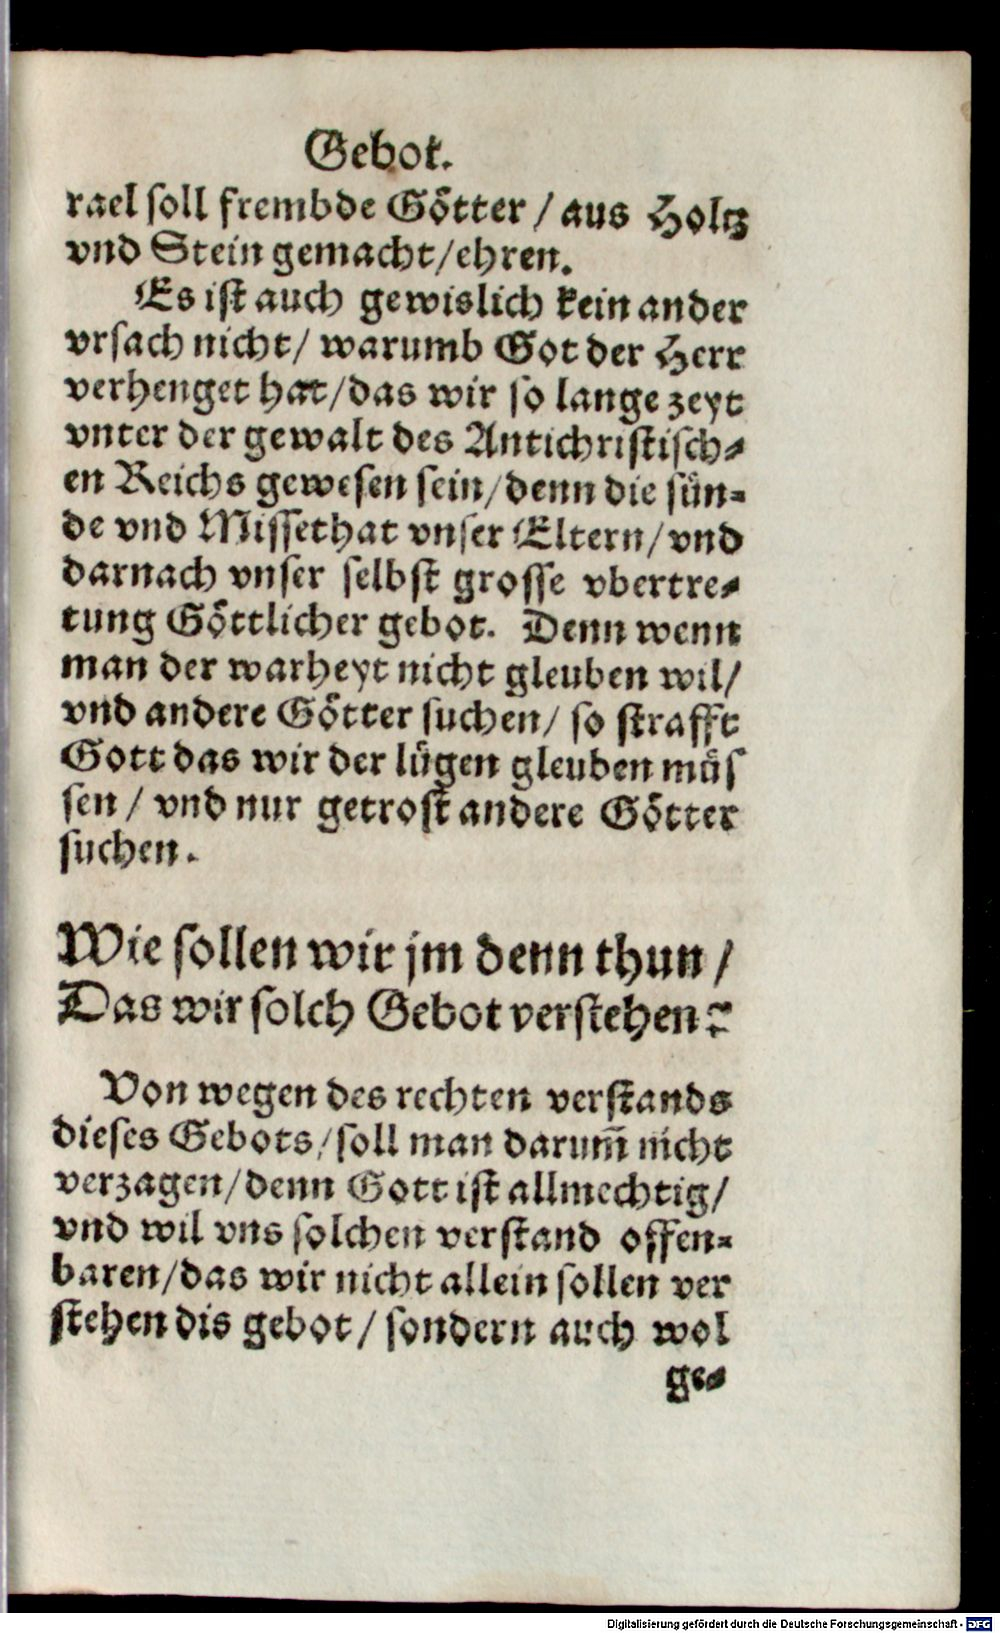 Gebot.
rael soll frembde Götter / aus Holtz
vnd Stein gemacht/ehren.
Es ist auch gewislich kein ander
vrsach nicht/ warumb Got der Herr
verhenget hat/das wir so lange zeyt
vnter der gewalt des Antichristisch-
en Reichs gewesen sein/denn die sün-
de vnd Missethat vnser Eltern/vnd
darnach vnser selbst grosse vbertre-
tung Göttlicher gebot. Denn wenn
man der warheyt nicht gleuben wil/
vnd andere Götter suchen/ so strafft
Gott das wir der lügen gleuben müs
sen / vnd nur getrost andere Götter
suchen.
Wie sollen wir jm denn thun /
Das wir solch Gebot verstehen?
Von wegen des rechten verstands
dieses Gebots/soll man darum̄ nicht
verzagen/denn Gott ist allmechtig/
vnd wil vns solchen verstand offen-
baren/das wir nicht allein sollen ver
stehen dis gebot/ sondern auch wol
ge-
Digitalisierung gefördert durch die Deutsche Forschungsgemeinschaft - DFG